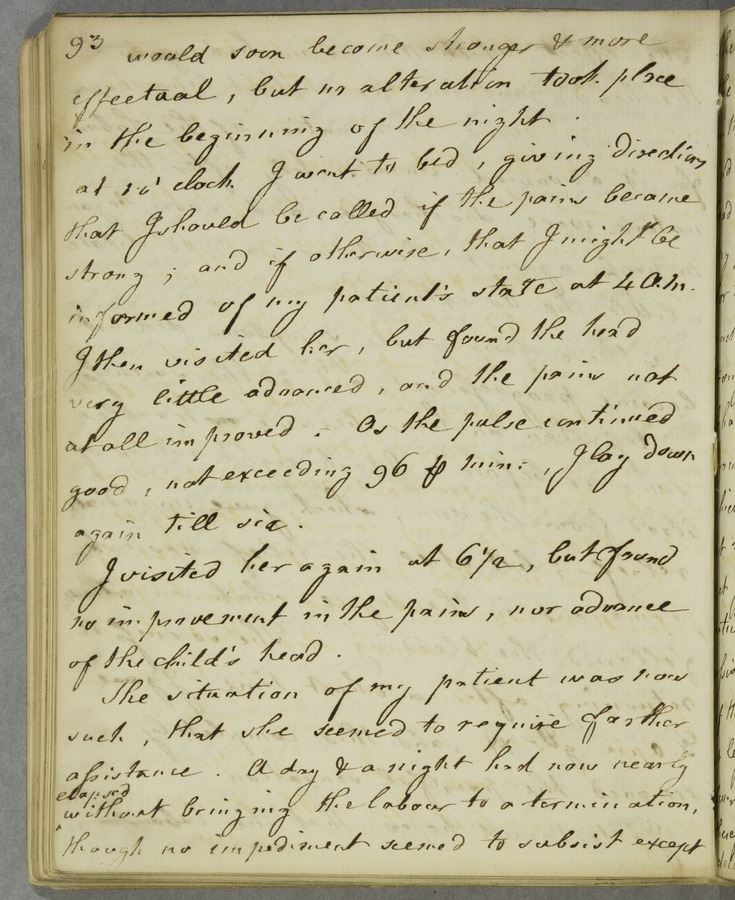 93 would soon become stronger & more
effectual, but no alteration took place
in the beginning of the night.
at 10' clock I went to bed, giving directions
that I should be called if the pains became
strong; and if otherwise, that I might be
informed of my patient's state at 4 A.M.
I then visited her, but found the head
very little advanced, and the pains not
at all improved. As the pulse continued
good, not exceeding 96 ⅌ min:, I lay down
again till six.
I visited her again at 6 1/2, but found
no improvement in the pains, nor advance
of the child's head.
The situation of my patient was now
such, that she seemed to require farther
assistance. A day & a night had now nearly
elapsed
without bringing the labour to a termination,
though no impediment seemed to subsist except